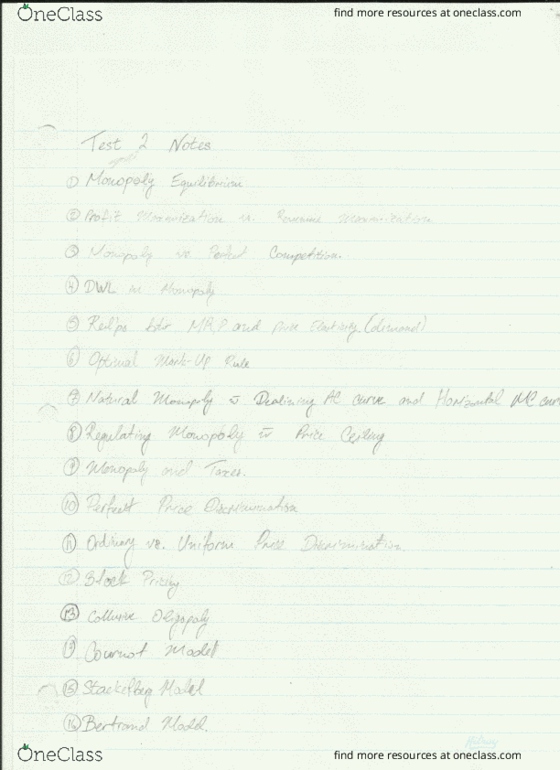 OneClass
find more resources at oneclass.com
Test 2 Notes
① Monopoly Equilibrium
② Profit Maximization vs. Revenue Maximization
③ Monopoly vs. Perfect Competition.
④ DWL in Monopoly
⑤ Rel'ps btw MR, P and Price Elasticity (demand)
⑥ Optimal Mark-Up Rule
⑦ Natural Monopoly w Declining AC curve and Horizontal MC
⑧ Regulating Monopoly w Price Ceiling
⑨ Monopoly and Taxes.
⑩ Perfect Price Discrimination
⑪ Ordinary vs. Uniform Price Discrimination
⑫ Block Pricing
⑬ Collusive Oligopoly
⑭ Cournot Model
⑮ Stackelberg Model
⑯ Bertrand Model.
Hilroy
OneClass
find more resources at oneclass.com